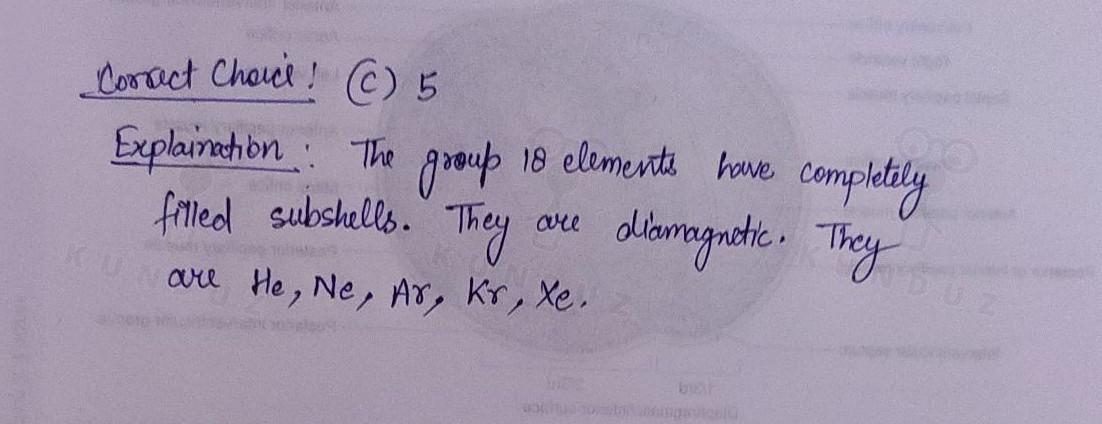 Correct Choice! (C) 5
Explaination : The group 18 elements have completely
filled subshells. They are diamagnetic. They
are He, Ne, Ar, Kr, Xe.
KUNDUZ